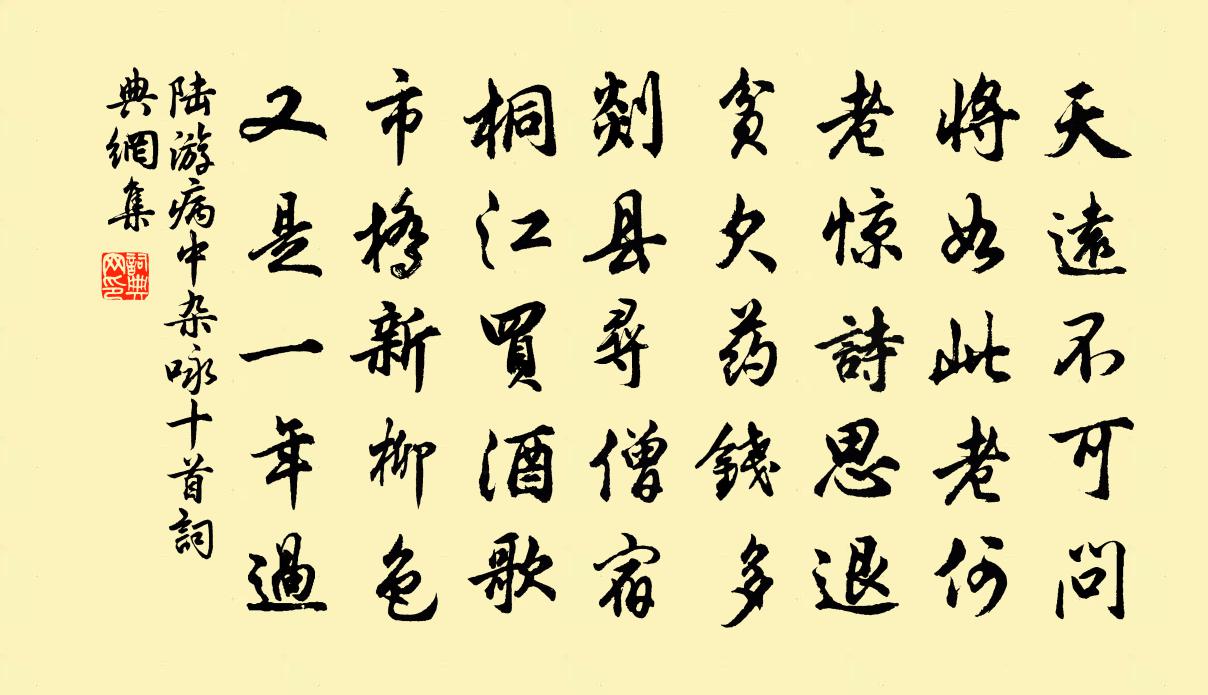 天遠不可問
將如此老何
老惊詩思退
貧欠药錢多
剡县尋僧宿
桐江買酒歌
市橋新柳色
又是一年過
陆游病中杂咏十首詞
典網集
詞典
网印